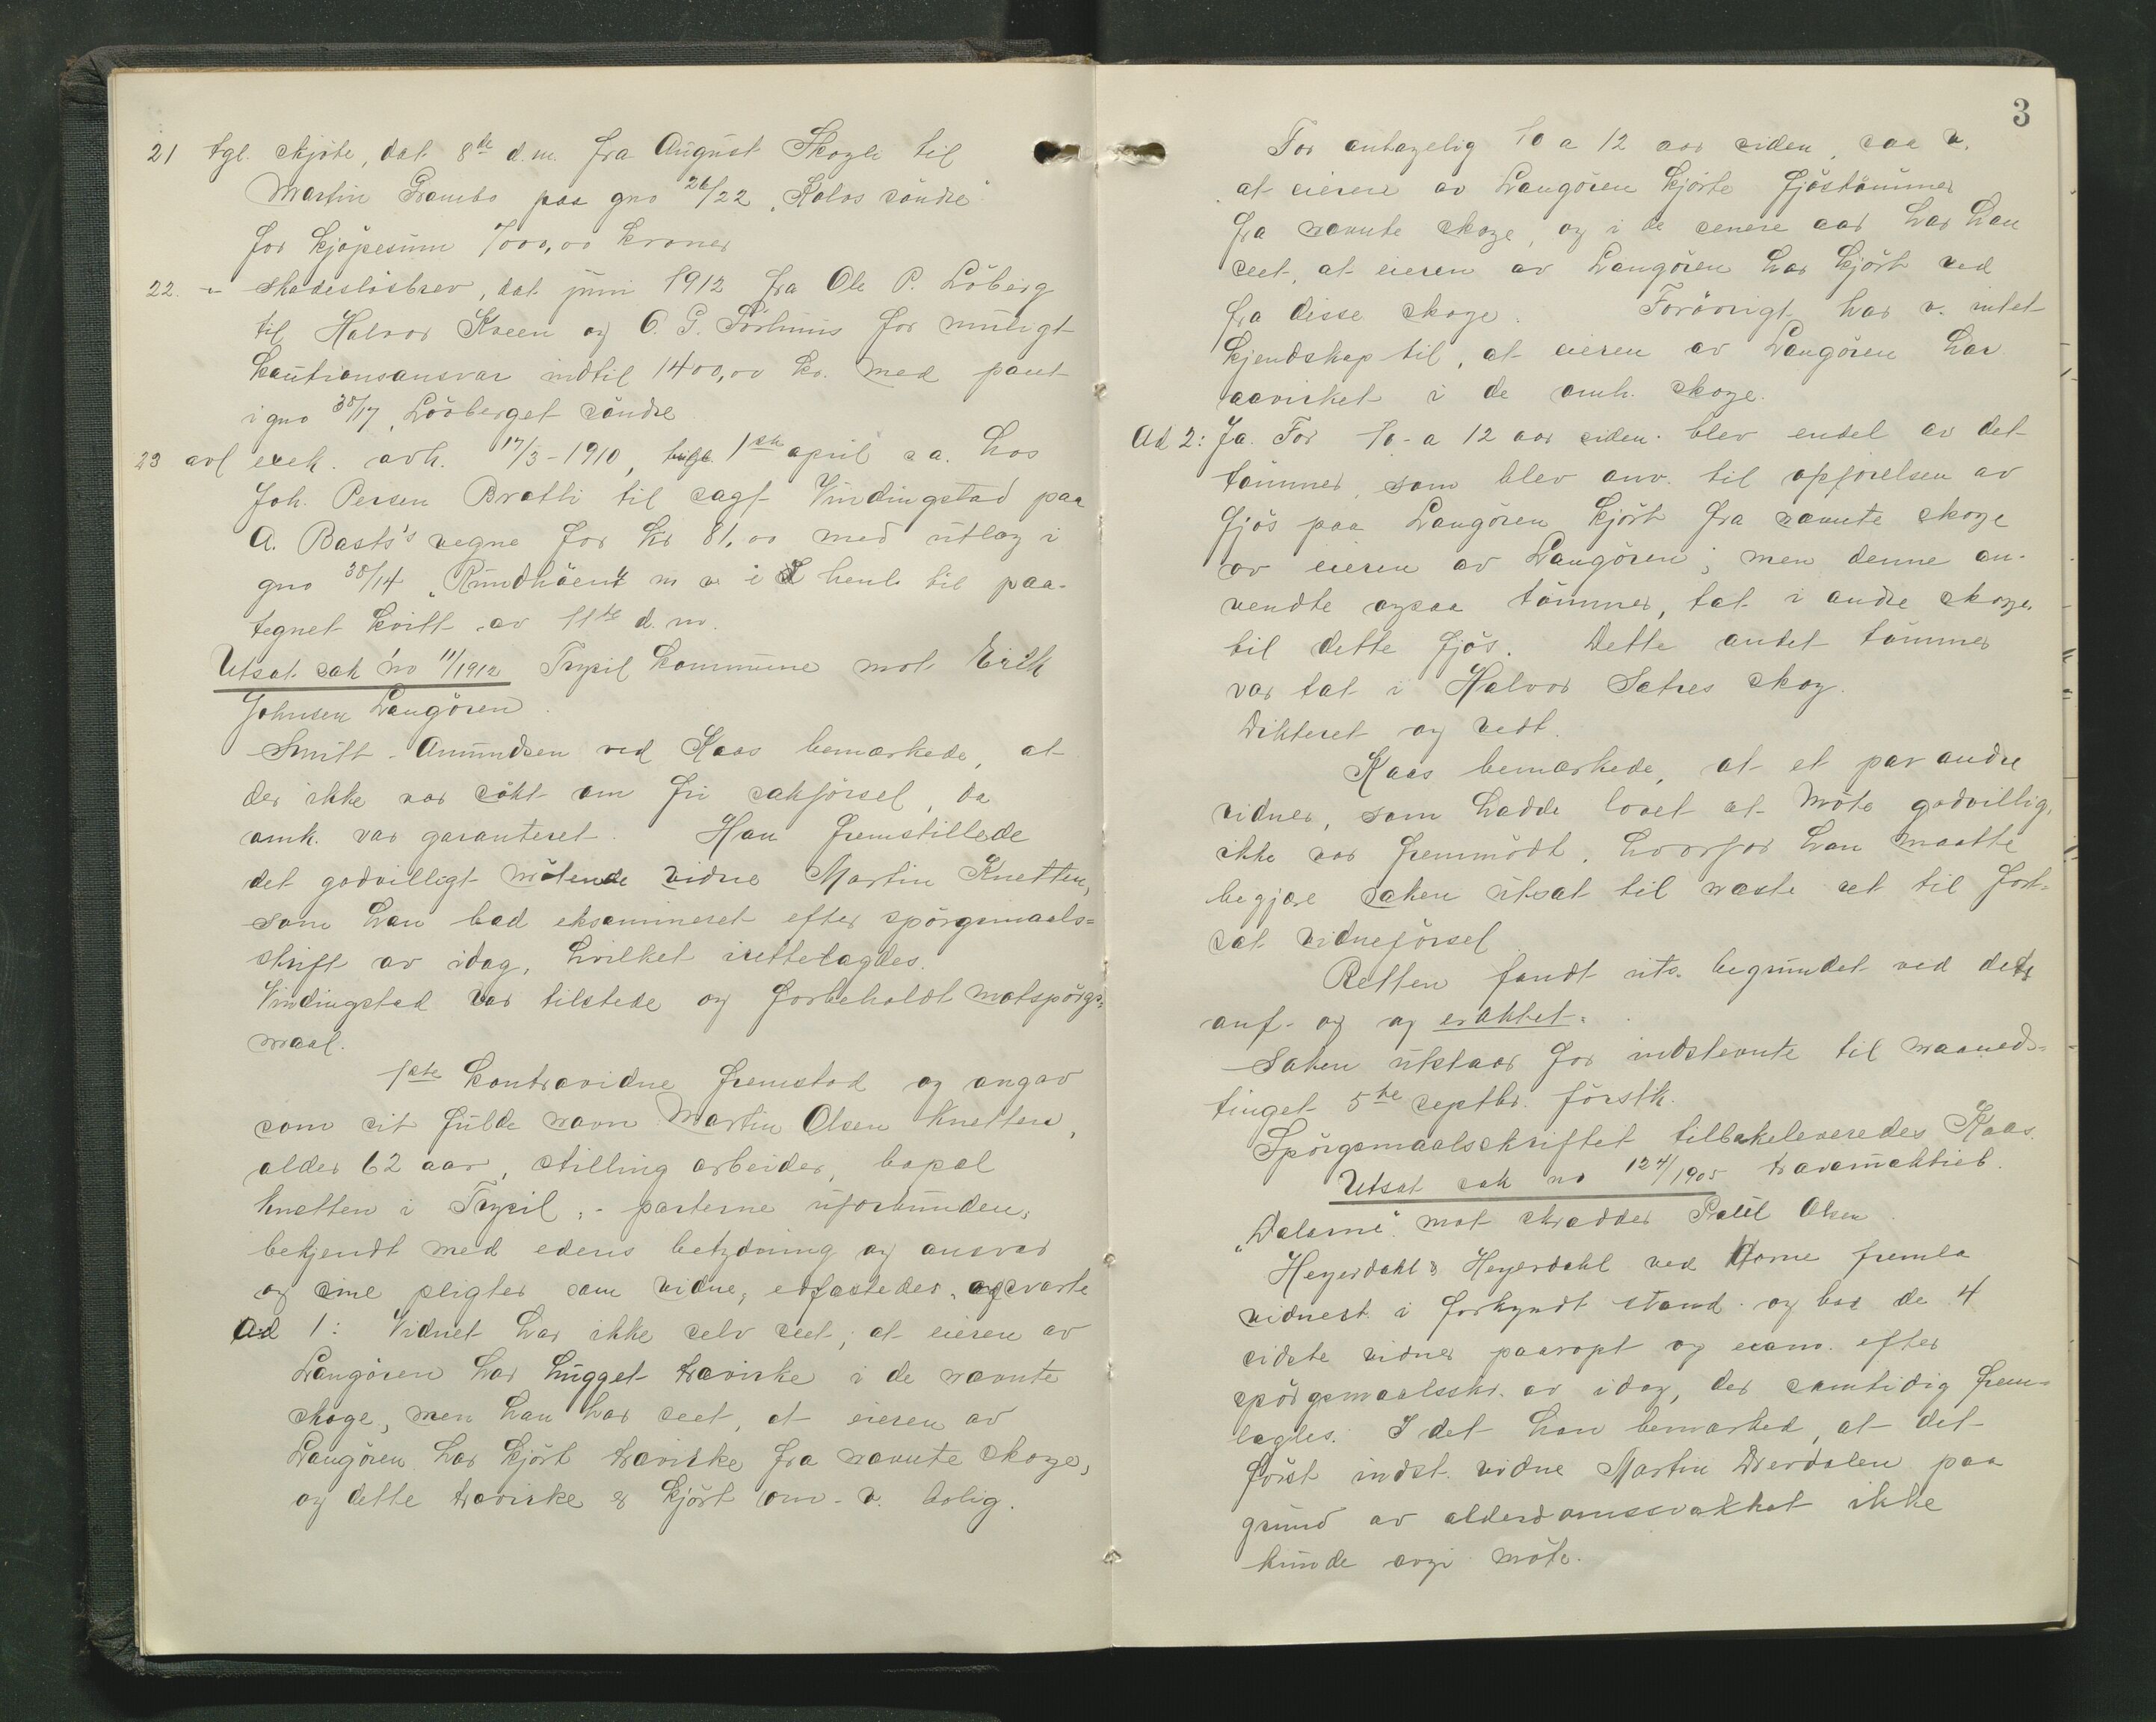 21 tgl. skjöte, dat. 8de d.m. fra August Skogli til
Martin Grambo paa gno 26/22 „Kolos söndre”
for kjöpesum 7000,00 kroner
22. " skadeslösbrev, dat juni 1912 fra Ole P. Löberg
til Halvor Kveen og O. G. Sörhuus for muligt
kautionsansvar indtil 1400,00 kr. med pant
i gno 38/17, Lövberget söndre
23 avl exek. avh. 17/3-1910, tingl. 1ste april s a. hos
Joh. Persen Bratli til sagf Vindingstad paa
A. Basts's vegne for kr 81,00 med utlæg i
gno 38/14 „Rundhöen” m v i henh til paa-
tegnet kvitt. av 11te d. m.
Utsat sak no 11/1912 Trysil kommune mot Erik
Johnsen Langören.
Smitt-Amundsen ved Kaas bemærkede, at
der ikke var sökt om fri sakförsel, da
omk. var garanteret. Han fremstillede
det godvilligt mötende vidne Martin Knetten,
som han bad eksamineret efter spörgsmaals=
skrift av idag, hvilket irettelagdes.
Vindingstad var tilstede og forbeholdt motspörgs=
maal.
1ste kontravidne fremstod og angav
som sit fulde navn Martin Olsen Knetten,
alder 62 aar, stilling arbeider, bopæl
Knetten i Trysil, - parterne uforbunden,
bekjendt med edens betydning og ansvar
og sine pligter som vidne, edfæstedes, og svarte
Ad 1: Vidnet har ikke selv seet, at eieren av
Langören har hugget trævirke i de nævnte
skoge, men han har seet, at eieren av
Langören har kjört trævirke fra nævnte skoge,
og dette trævirke er kjört om v. bolig.
3
For antagelig 10 a 12 aar siden, saa v.
at eieren av Langören kjörte fjöstömmer
fra nævnte skoge, og i de senere aar har han
seet, at eieren av Langören har kjört ved
fra disse skoge. Forövrigt har v. intet
kjendskap til, at eieren av Langören har
aavirket i de omh. skoge.
Ad 2: Ja. For 10 - a 12 aar siden blev endel av det
tömmer, som blev anv. til opförelsen av
fjös paa Langören kjört fra nævnte skoge
av eieren av Langören; men denne an-
vendte ogsaa tömmer, tat i andre skoge,
til dette fjös. Dette andet tömmer
var tat i Halvor Sætres skog.
Dikteret og vedt.
Kaas bemærkede, at et par andre
vidner, som hadde lovet at möte godvillig,
ikke var fremmödt, hvorfor han maatte
begjære saken utsat til næste ret til fort-
sat vidneförsel
Retten fandt uts. begrundet ved dets
anf. og og eraktet.
Saken utstaar for indstevnte til maaneds=
tinget 5te septbr. förstk.
Spörgsmaalskriftet tilbakeleveredes Kaas.
Utsat sak no 124/1905 træromaktieb.
„Dalarne” mot skrædder Paul Olsen.
Heyerdahl & Heyerdahl ved Horne fremla
vidnest. i forkyndt stand og bad de 4
sidste vidner paaropt og exam. efter
spörgsmaalsskr. av idag, der samtidig frem=
lagdes. I det han bemærked, at det
först indst. vidne Martin Dverdalen paa
grund av alderdomssvakhet ikke
kunde avgi möte.